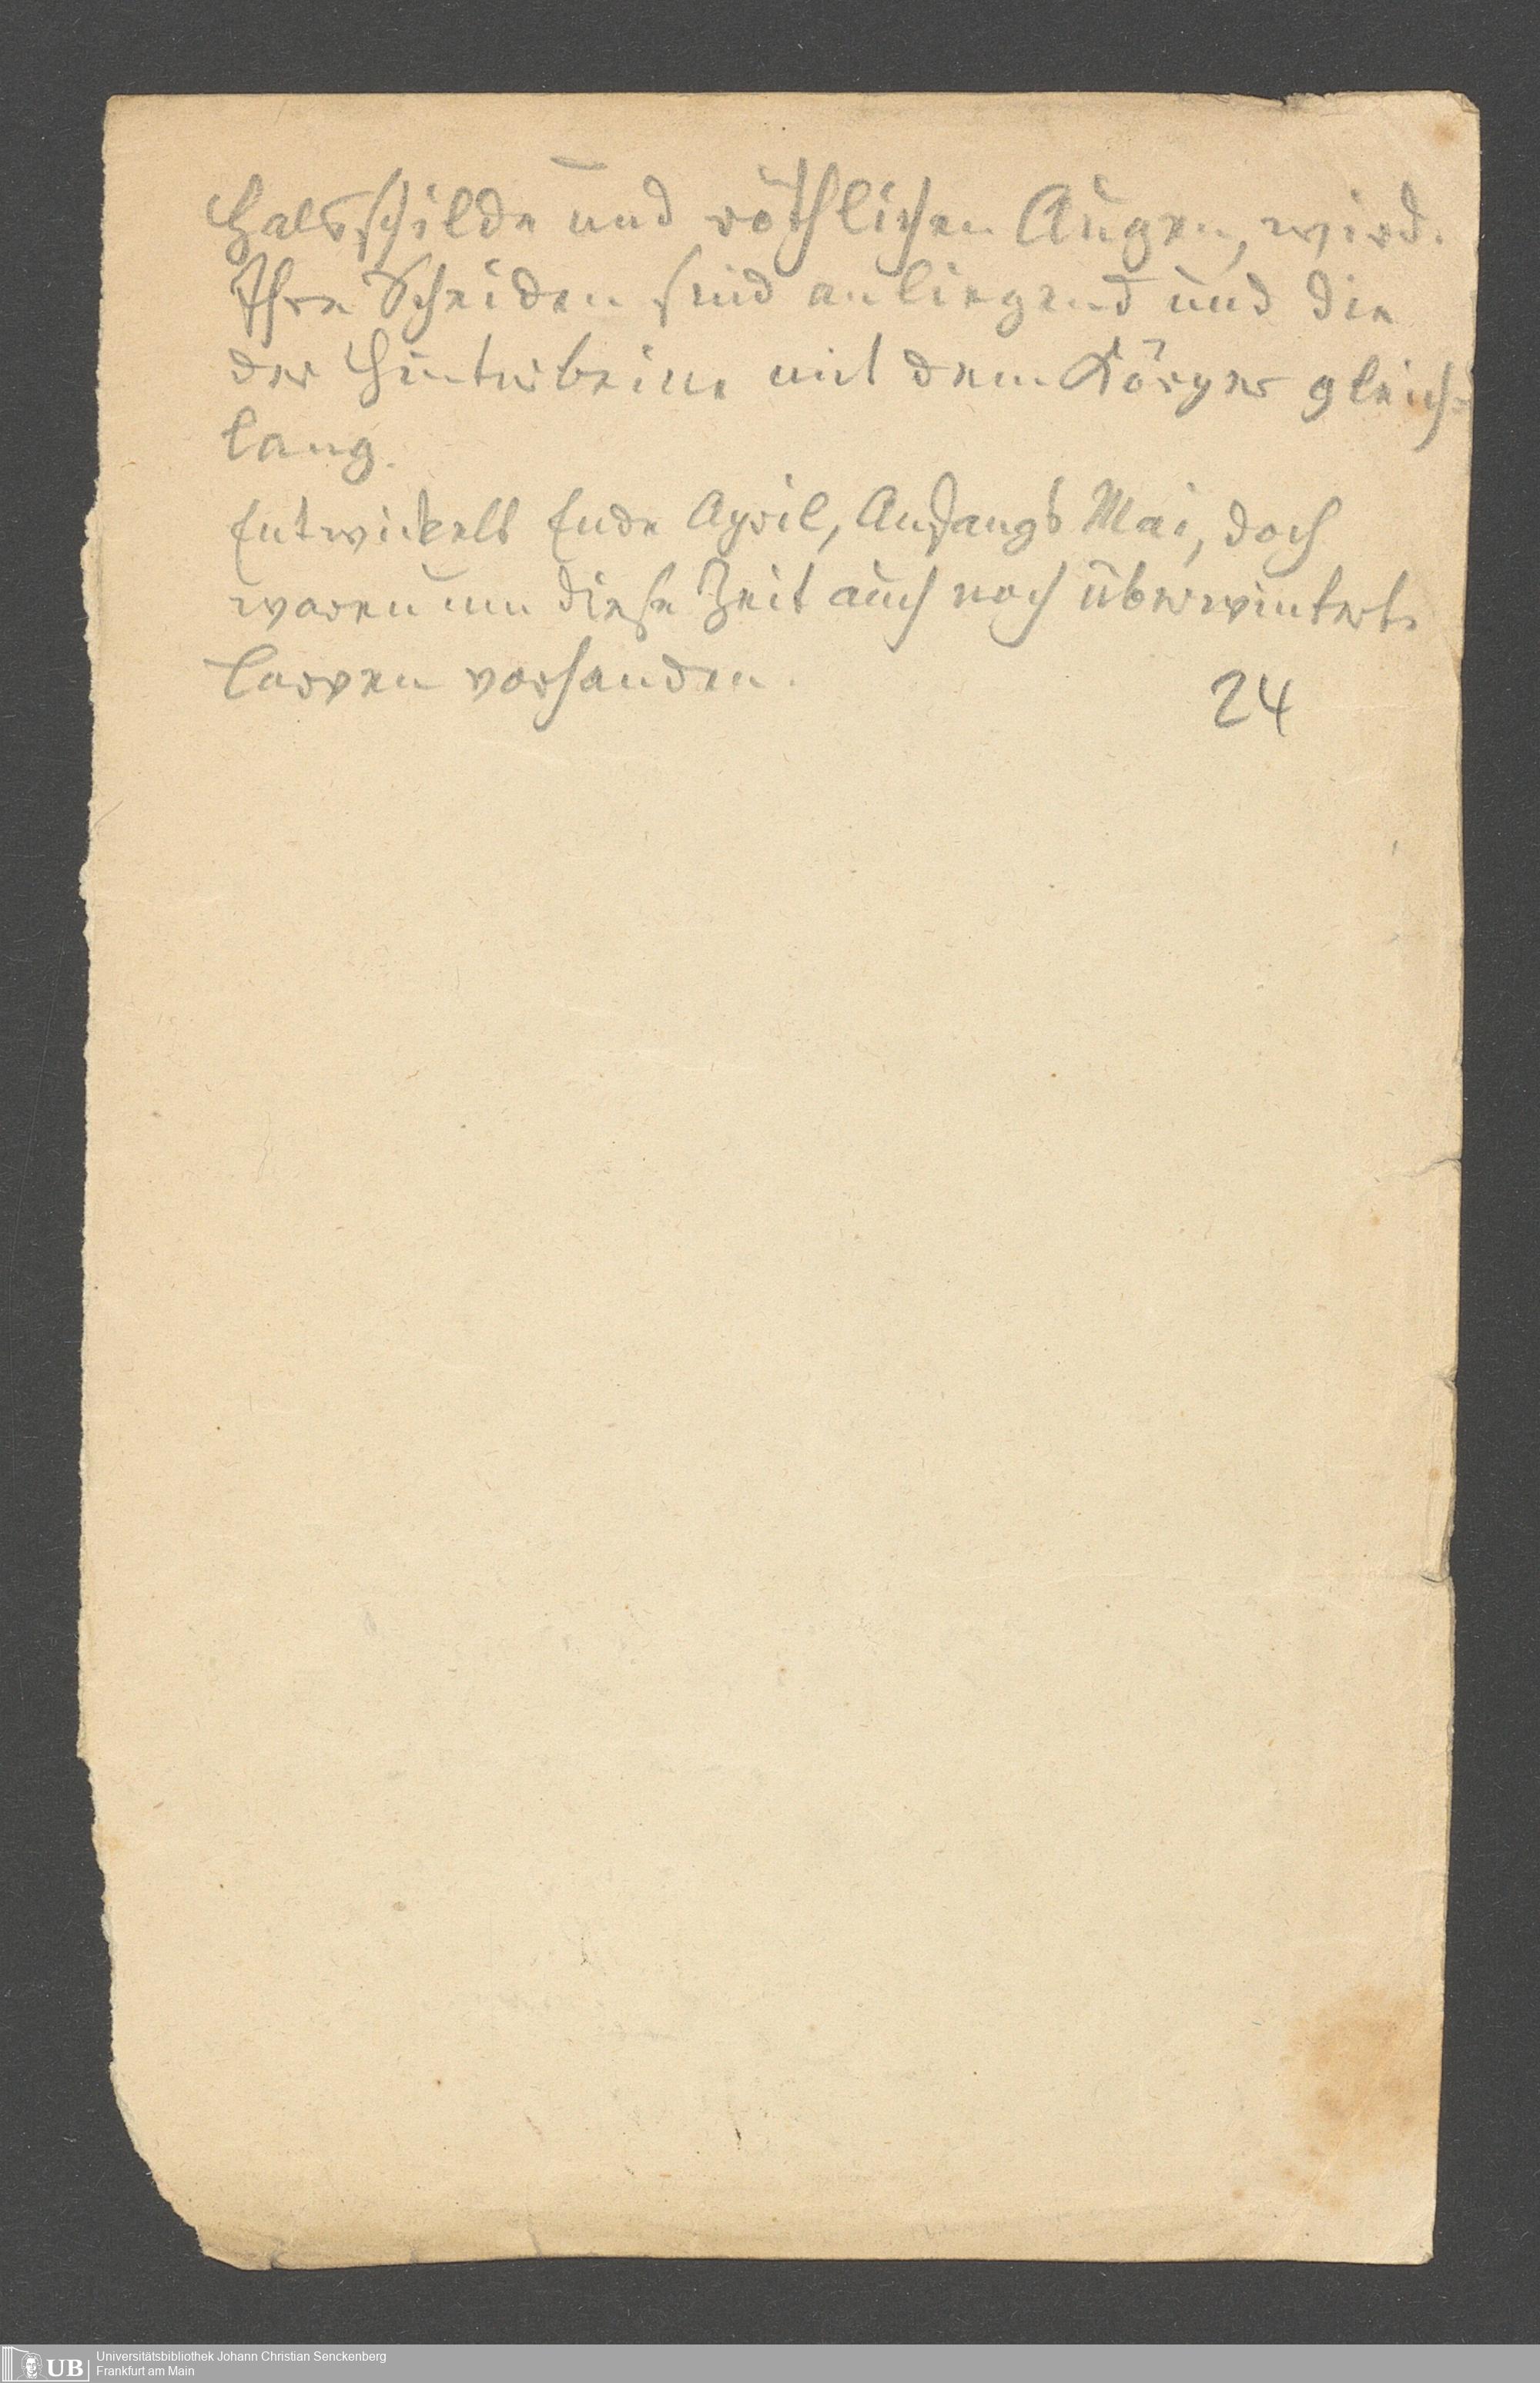 Halsschilde und röthlichen Augen, wird.
Ihre Scheiden sind anliegend und die
der Hinterbeine mit dem Körper gleich=
lang.
Entwickelt Ende April, Anfangs Mai, doch
waren um diese Zeit auch noch überwinterte
Larven vorhanden.
24
UB
Universitätsbibliothek Johann Christian Senckenberg
Frankfurt am Main